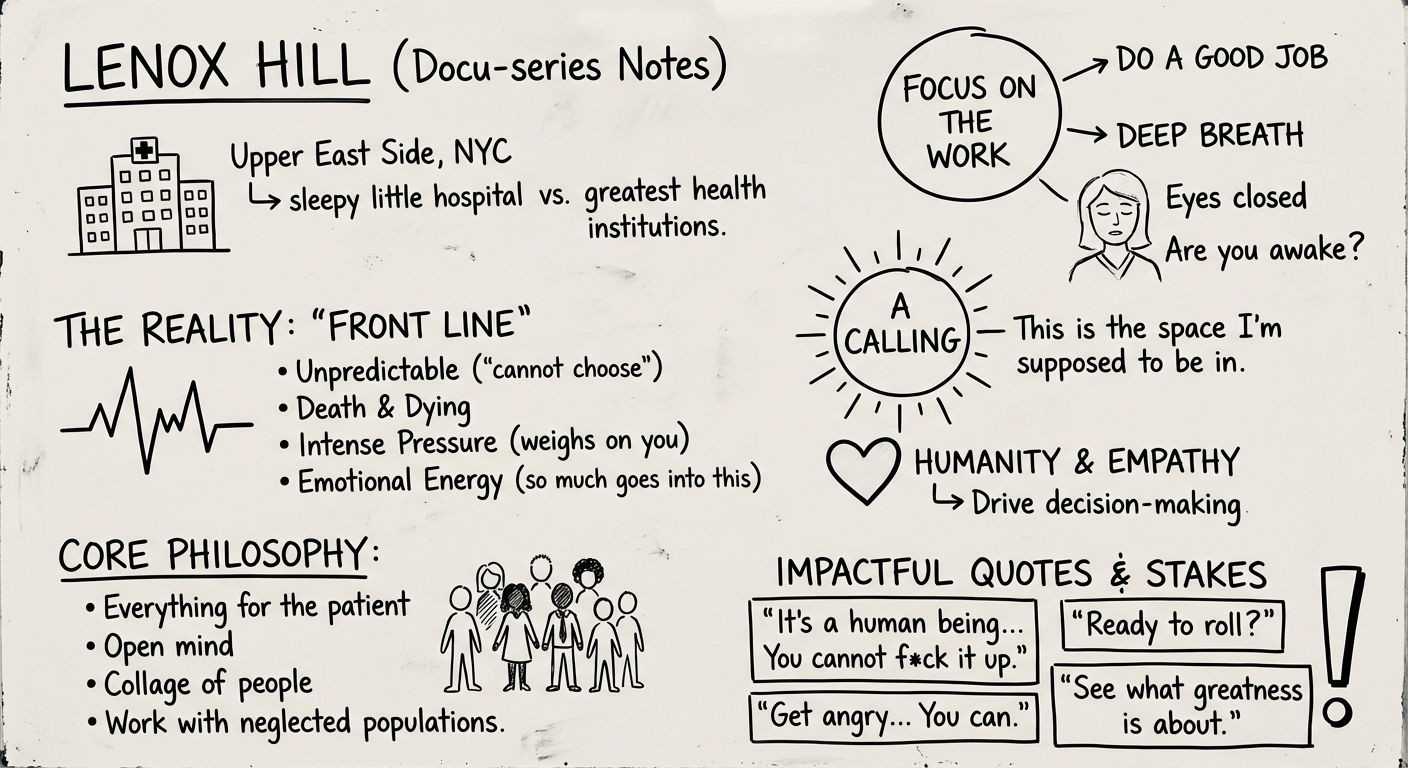 LENOX HILL (Docu-series Notes)
Upper East Side, NYC
↳ sleepy little hospital vs. greatest health
institutions.
THE REALITY: "FRONT LINE"
• Unpredictable ("cannot choose")
• Death & Dying
• Intense Pressure (weighs on you)
• Emotional Energy (so much goes into this)
CORE PHILOSOPHY:
• Everything for the patient
• Open mind
• Collage of people
• Work with neglected populations.
FOCUS ON
THE
WORK
→ DO A GOOD JOB
→ DEEP BREATH
Eyes closed
Are you awake?
A
CALLING
This is the space I'm
supposed to be in.
HUMANITY & EMPATHY
↳ Drive decision-making.
IMPACTFUL QUOTES & STAKES
"It's a human being...
You cannot f*ck it up."
"Ready to roll?"
"Get angry... You can."
"See what greatness
is about."
!